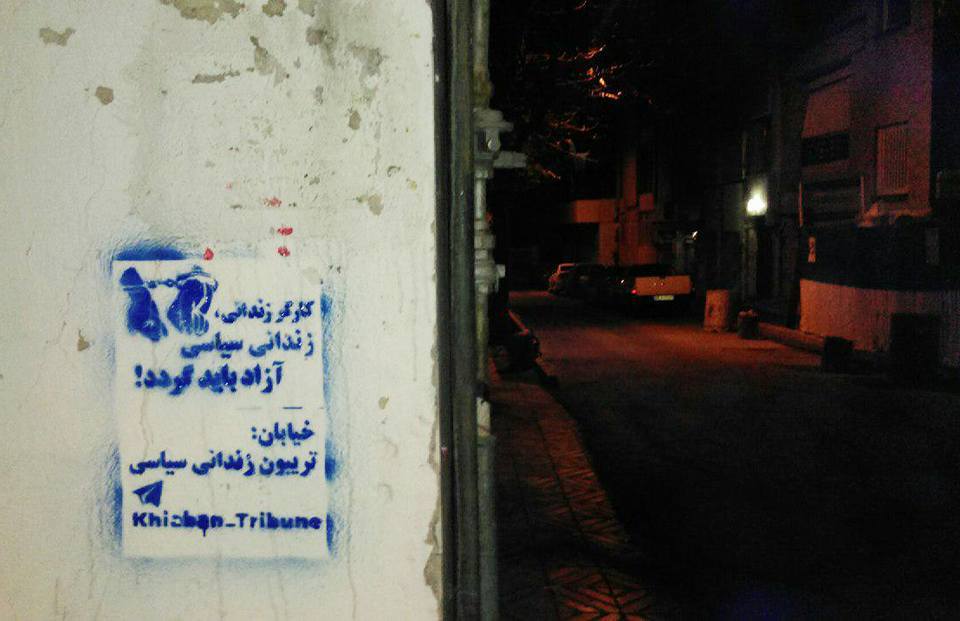 کارگر زندانی،
زندانی سیاسی
آزاد باید گردد!
خیابان:
تریبون زندانی سیاسی
Khiaban_Tribune